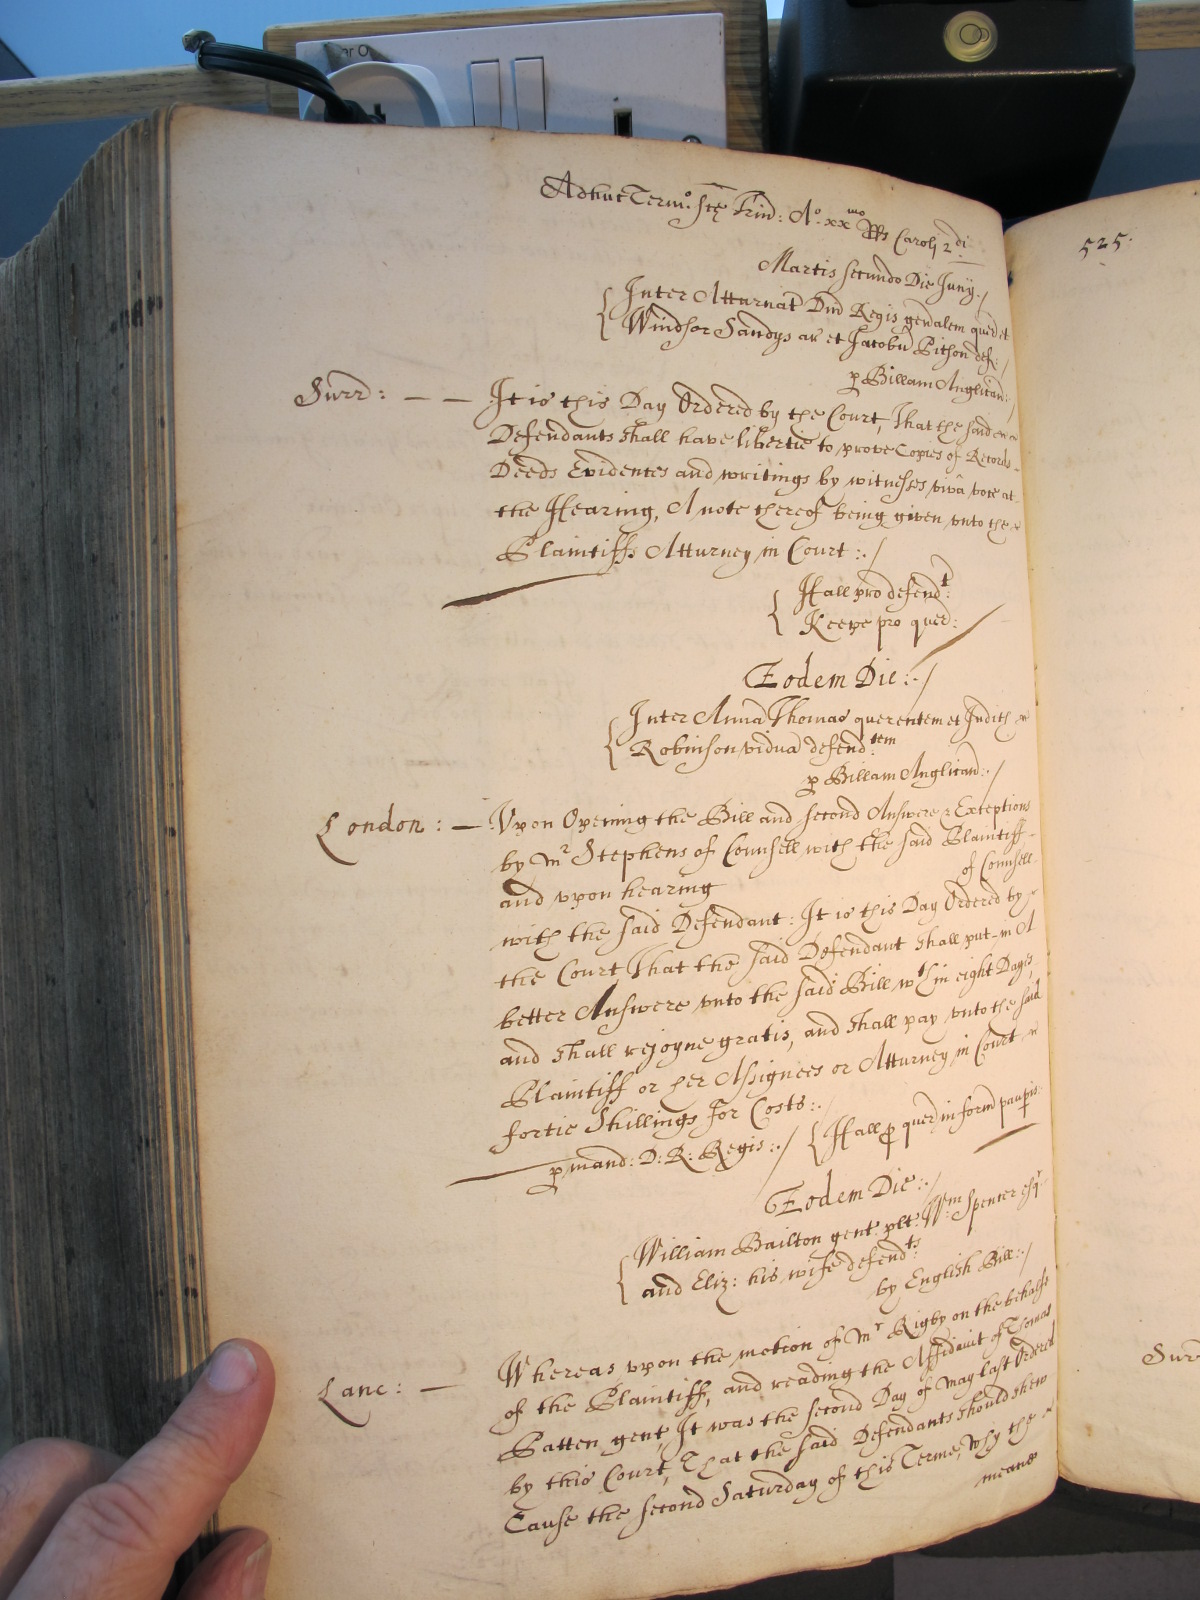 Adhuc Termo: Ste Trin: Ao. xxmo Rs Carolj 2di
525.
Martis secundo Die Junij./
Inter Atturnat Dni Regis gen'alem quer et
Windsor Sandys ar et Jacobu Pitson def:/
p Billam Anglican:/
Surr: — — It is this Day Ordered by the Court, That the said
Defendants shall have libertie to prove Copies of Records
Deeds Evidences and writings by witnesses vivâ voce at
the Hearing, A note thereof being given vnto the
Plaintiffs Atturney in Court :./
Hall pro defendt:
Keepe pro quer:
Eodem Die:-/
Inter Anna Thomas querentem et Judith
Robinson vidua defend:tem
p Billam Anglican:./
London: — Vpon Opening the Bill and second Answere & Exceptions
by Mr Stephens of Counsell with the said Plaintiff
and vpon hearing of Counsell
with the said Defendant: It is this Day Ordered by
the Court That the said Defendant shall put in A
better Answere vnto the said Bill wthin eight Dayes,
and shall rejoyne gratis, and shall pay vnto the said
Plaintiff or her Assignees or Atturney in Court
fortie Shillings for Costs:./
p mand: D: R: Regis:./ Hall p quer in form paup'is:
Eodem Die:./
William Bailton gent: plt: Wm: Spencer esqr
and Eliz: his wife defendts:
by English Bill:./
Lanc: — Whereas vpon the motion of Mr Rigby on the behalfe
of the Plaintiff, and reading the Affidavit of Thomas
Patten gent, It was the second Day of May last Ordered
by this Court, That the said Defendants should shew
Cause the second Saturday of this Terme, Why the
meane
Surr